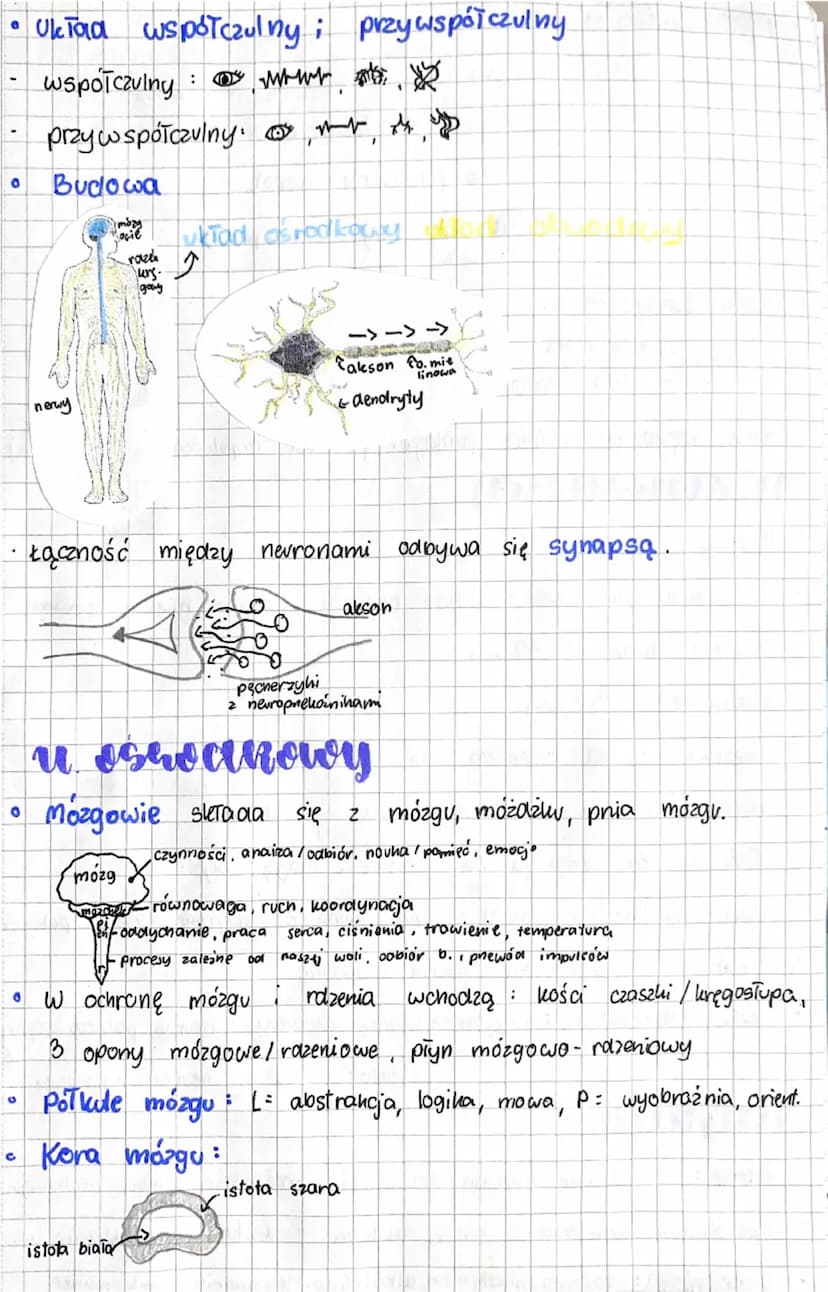 • Układ współczulny i przywspółczulny
- współczulny :
- przywspółczulny:
• Budowa
mózg
owie
rdzeń
kręgowy
układ ośrodkowy układ obwodowy
akson
o. mie
linowa
nerwy
dendryty
· Łączność między neuronami odbywa się synapsą.
akson
pęcherzyki
z neuroprzekaźnikami
u. ośrodkowy
• Mózgowie składa się z mózgu, móżdżku, pnia mózgu.
czynności, analiza / odbiór, nauka / pamięć, emocje
mózg
móżdżek
równowaga, ruch, koordynacja
pień
oddychanie, praca serca, ciśnienia, trawienie, temperatura
procesy zależne od naszej woli, odbiór b. i przewód impulsów
• W ochronę mózgu i rdzenia wchodzą : kości czaszki / kręgosłupa,
3 opony mózgowe / rdzeniowe, płyn mózgowo - rdzeniowy
• Półkule mózgu : L= abstrakcja, logika, mowa, P= wyobraźnia, orient.
• Kora mózgu :
istota szara
istota biała